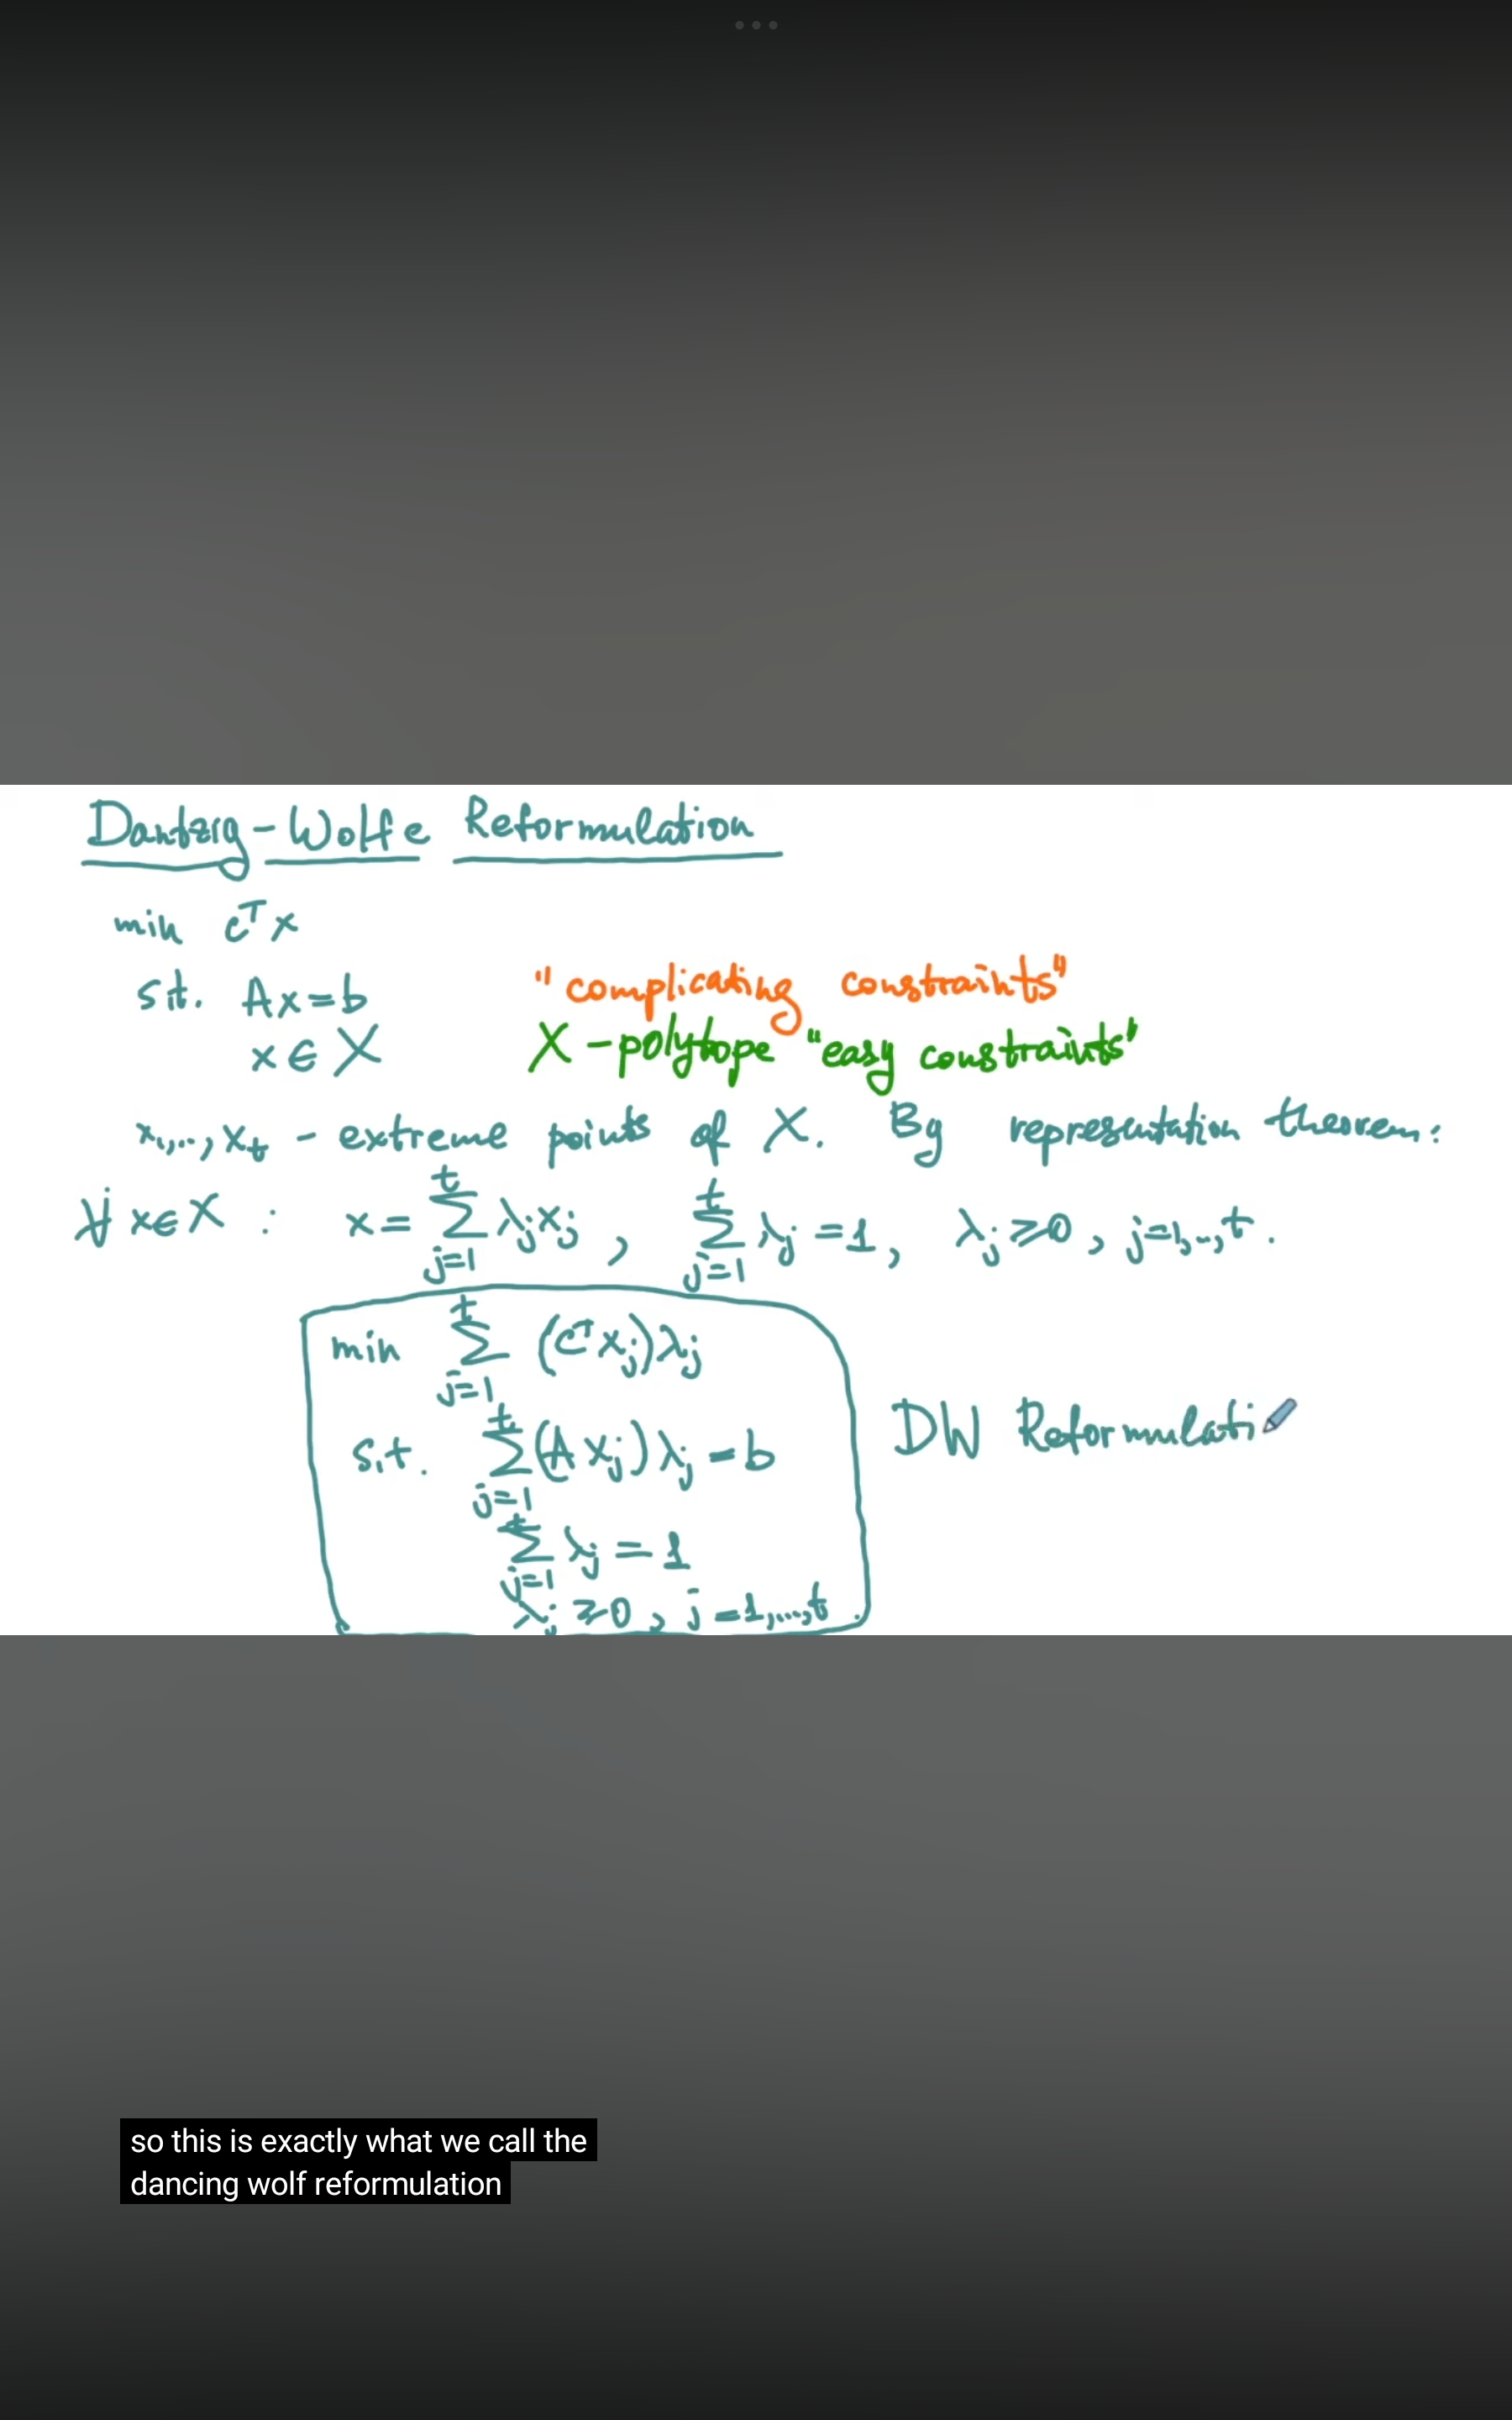 Dantzig-Wolfe Reformulation
min cᵀx
s.t. Ax=b "complicating constraints"
x∈X X-polytope "easy constraints"
x₁,..,xₜ - extreme points of X. By representation theorem:
∀ x∈X : x = ∑_{j=1}^{t} λⱼxⱼ , ∑_{j=1}^{t} λⱼ = 1, λⱼ≥0, j=1,..,t.
min ∑_{j=1}^{t} (cᵀxⱼ)λⱼ
s.t. ∑_{j=1}^{t} (Axⱼ)λⱼ = b DW Reformulati
∑_{j=1}^{t} λⱼ = 1
λⱼ ≥0, j=1,...,t
so this is exactly what we call the
dancing wolf reformulation